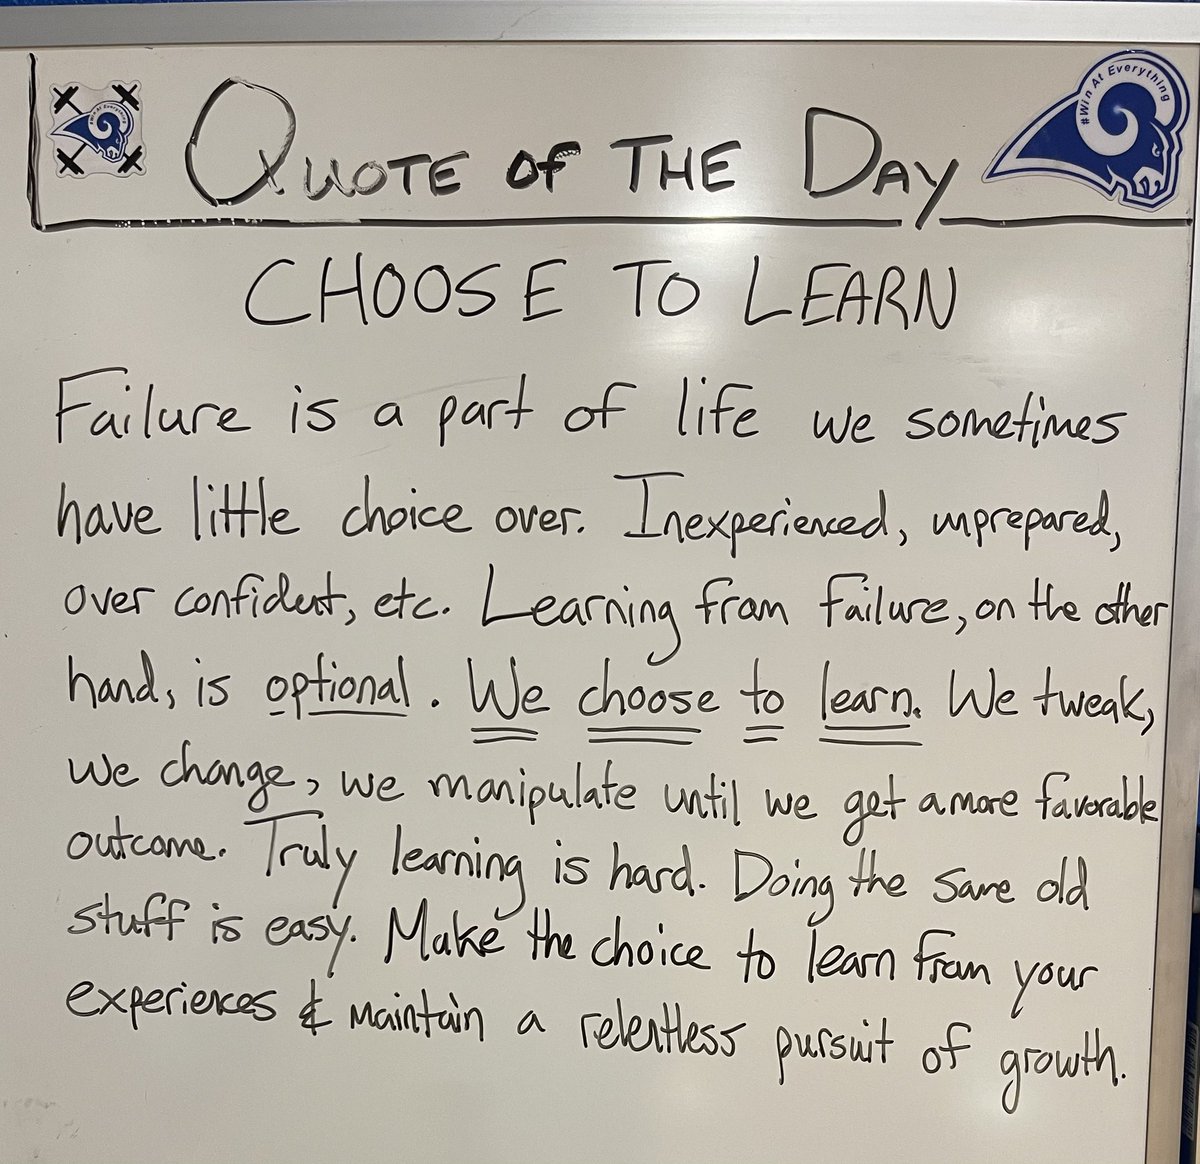 #Win At Everything
QUOTE OF THE DAY
#Win At Everything
CHOOSE TO LEARN
Failure is a part of life we sometimes
have little choice over. Inexperienced, unprepared,
over confident, etc. Learning from failure, on the other
hand, is optional. We choose to learn. We tweak,
we change, we manipulate until we get a more favorable
outcome. Truly learning is hard. Doing the same old
stuff is easy. Make the choice to learn from your
experiences & maintain a relentless pursuit of growth.